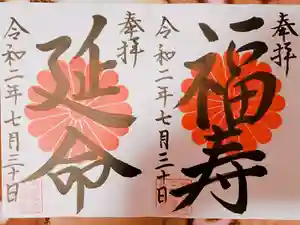 奉拝
福寿
令和二年七月三十日
奉拝
延命
令和二年七月三十日